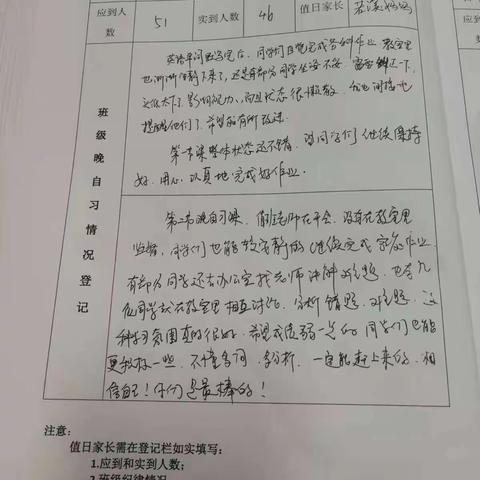 应到人数 51 实到人数 46 值日家长
班级晚自习情况登记
英语单词默写完后,同学们自觉完成各科作业 教室里
也渐渐安静下来了,还是有部分同学坐姿不妥,需要纠正一下,
头低太下了影响视力,而且状态很懒散,
提醒他们了,希望能有所改进。
第一节课整体状态还不错,望同学们继续保持
好,用心认真地完成好作业。
第二节晚自习课,值班老师在开会,没有在教室里
监督,同学们也能较安静的继续完成家庭作业,
有部分同学还去办公室找老师讲解难题,也有几
位同学就在教室里相互讨论,分析错题、难题,这
种学习氛围真的很好,希望成绩弱一点的同学们也能
更积极一些,不懂多问,多分析,一定能赶上来的,相
信自己!你们是最棒的!
注意:
值日家长需在登记栏如实填写:
1.应到和实到人数;
2.班级纪律情况